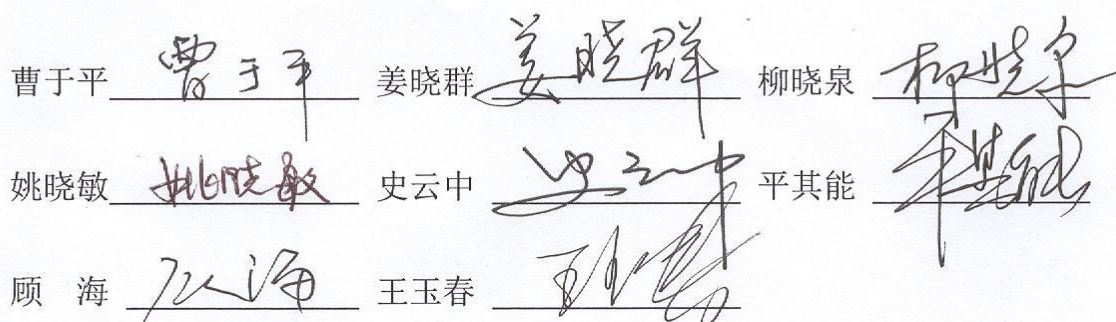 曹于平 曹于平 姜晓群 姜晓群 柳晓泉 柳晓泉
姚晓敏 姚晓敏 史云中 史云中 平其能 平其能
顾 海 顾海 王玉春 王玉春